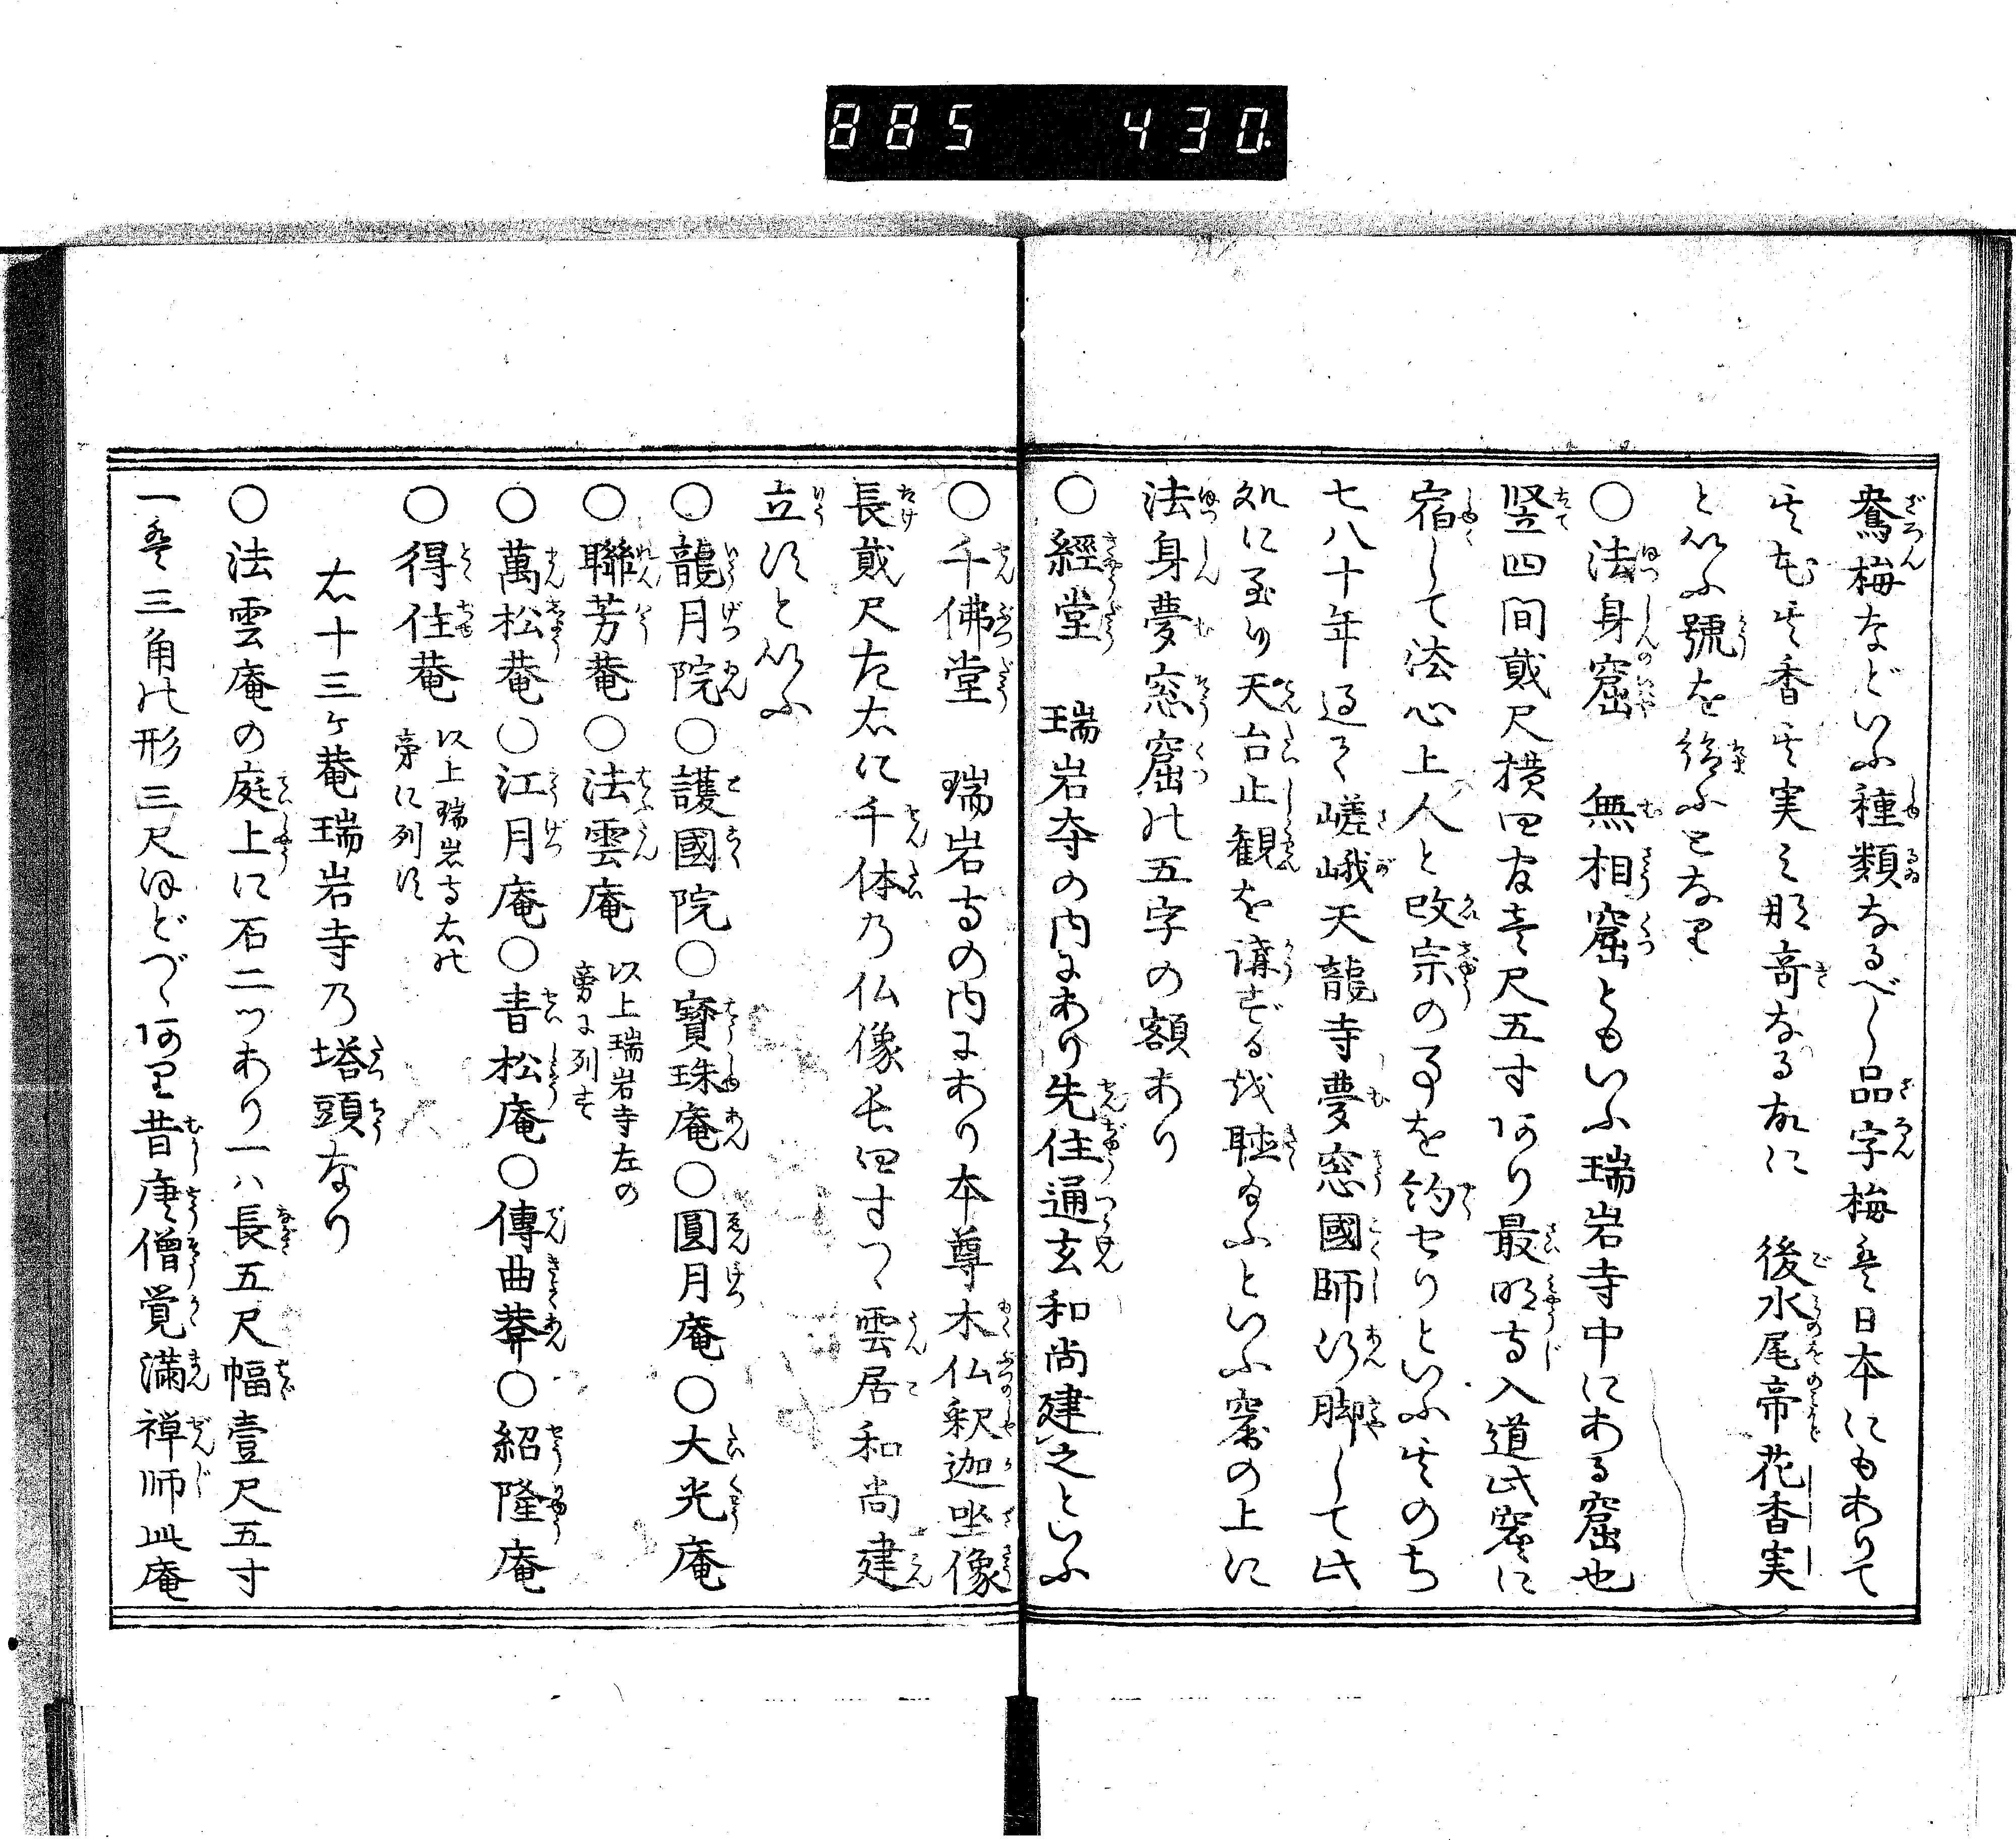 885 430.
鴦梅などいふ種類なるべし品字梅は日本にもありて
其花其香其実之那奇なる故に 後水尾帝花香実
といふ號を給ふとなり
○法身窟 無相窟ともいふ瑞岩寺中にある窟也
竪四間貳尺横四間壱尺五寸あり最明寺入道此窟に
宿して法心上人と改宗の事を約せりといふ其のち
七八十年過て嵯峨天龍寺夢窓國師行脚して此
処に至り天台止観を講ずる越聴給ふといふ窟の上に
法身夢窓窟の五字の額あり
○經堂 瑞岩寺の内にあり先住通玄和尚建之といふ
○千佛堂 瑞岩寺の内にあり本尊木仏釈迦坐像
長貳尺左右に千体乃仏像長四寸つゝ雲居和尚建
立すといふ
○龍月院○護國院○寶珠庵○圓月庵○大光庵
○聯芳菴○法雲庵 以上瑞岩寺左の
旁に列す
○萬松菴○江月庵○青松庵○傳曲菴○紹隆庵
○得住菴 以上瑞岩寺右の
旁に列す
右十三ヶ菴瑞岩寺乃塔頭なり
○法雲庵の庭上に石二ツあり一ハ長五尺幅壹尺五寸
一は三角の形三尺ほどづゝあり昔唐僧覚満禅師此庵